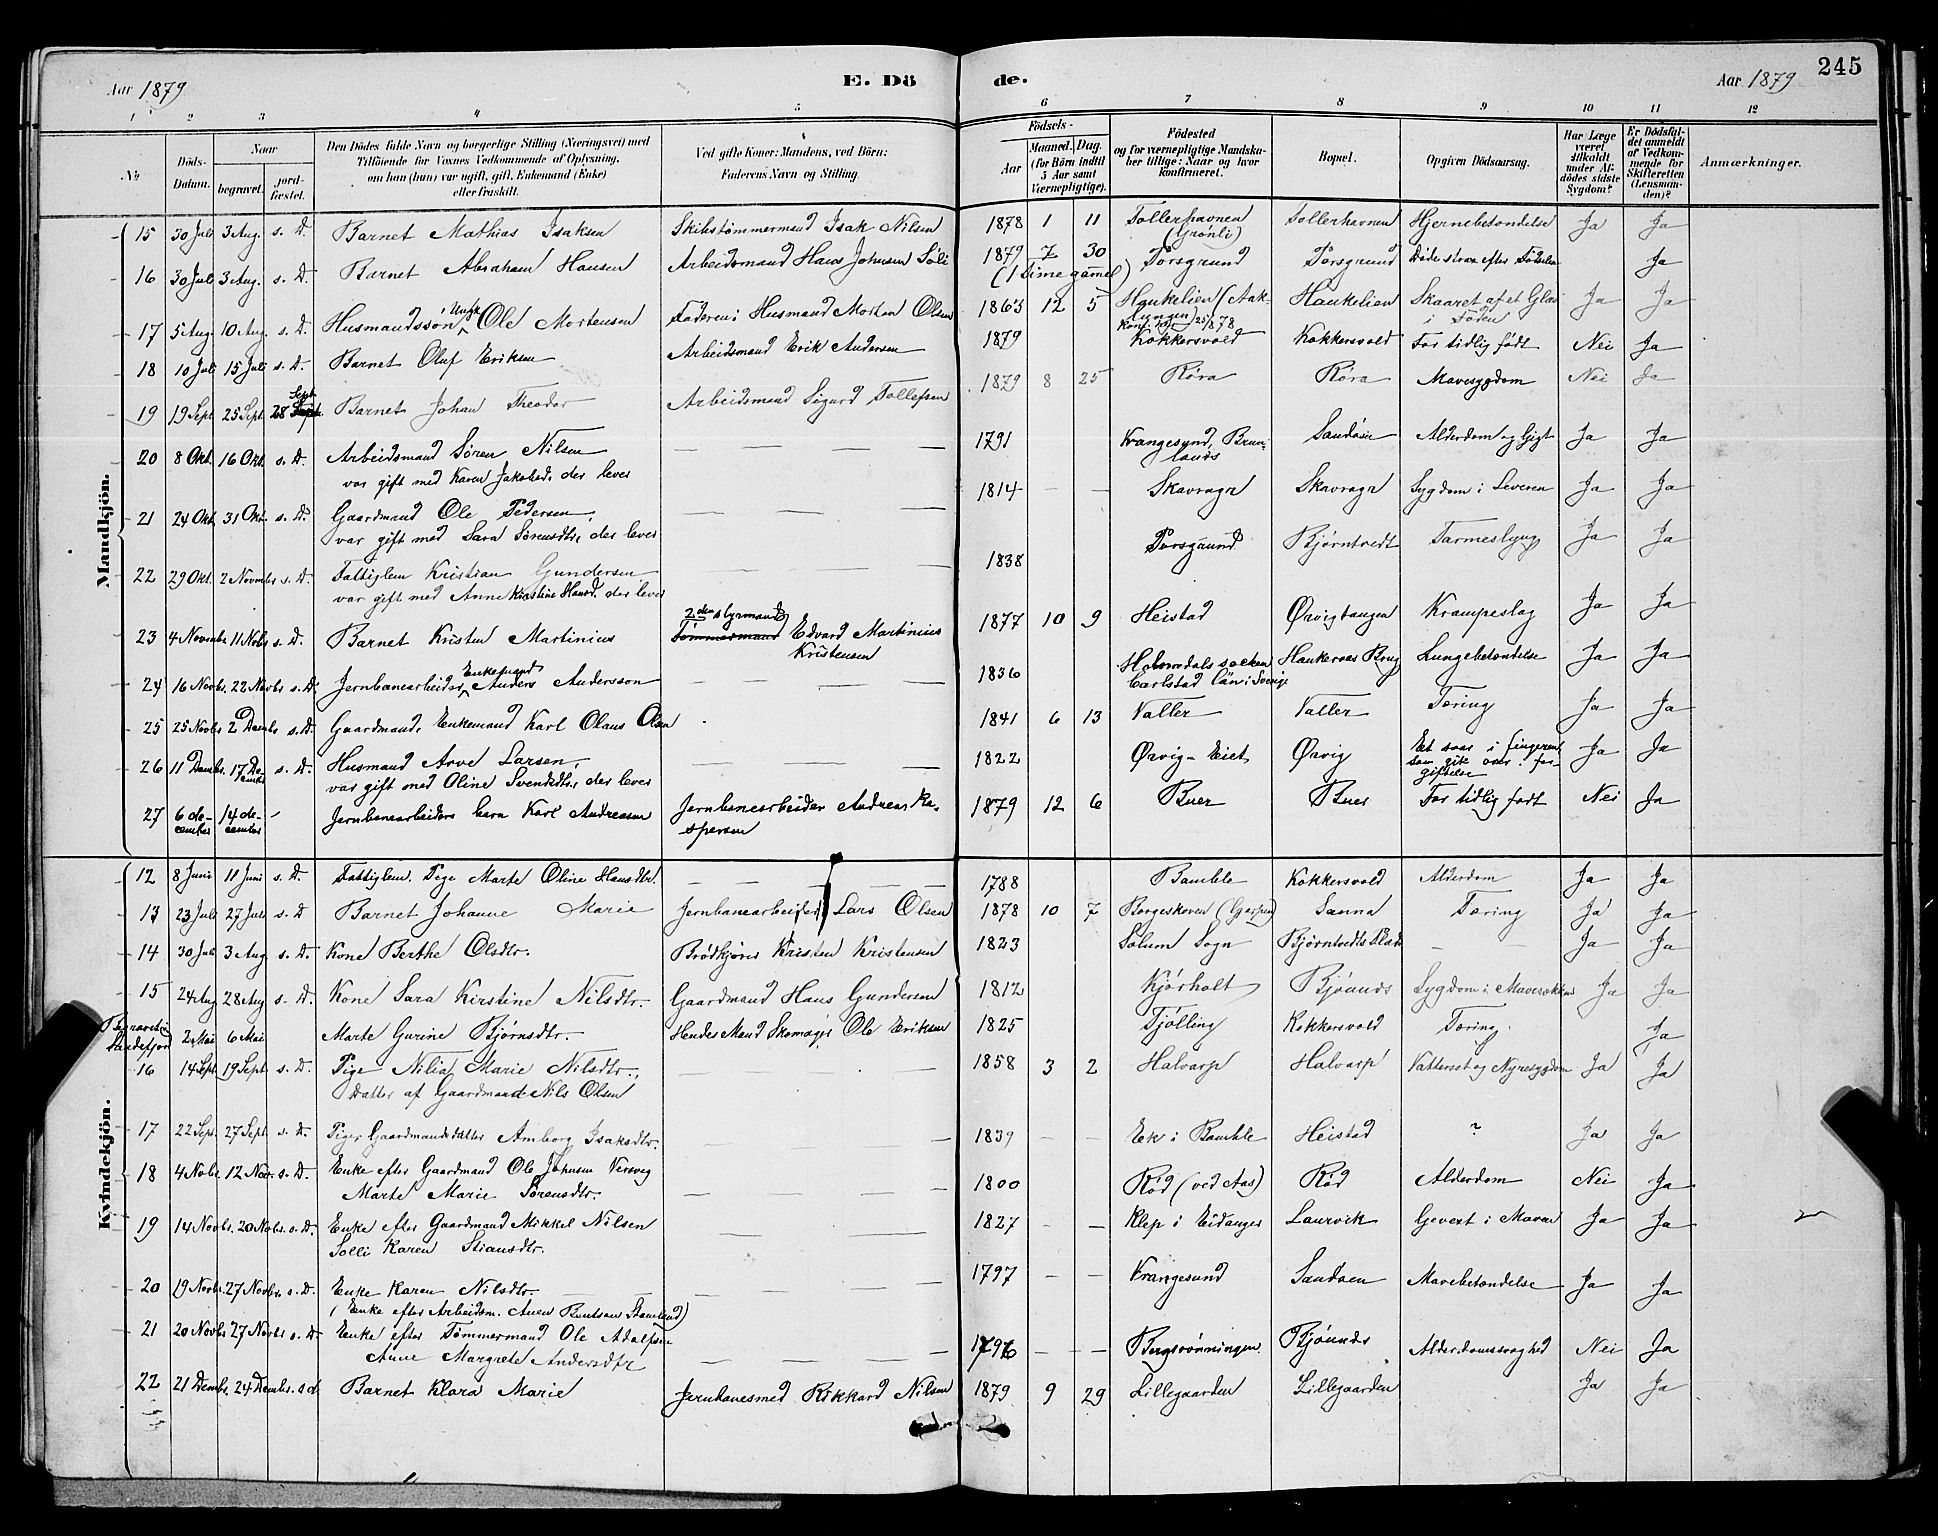 Aar 1879
E. Dö
de.
Aar 1879
245
1 2 3 4 5 6 7 8 9 10 11 12
No
Döds-Datum.
Naar
begravet.
jord-fæstet.
Den Dödes fulde Navn og borgerlige Stilling (Næringsvei) med
Tilföiende for Voxnes Vedkommende af Oplysning,
om han (hun) var ugift, gift, Enkemand (Enke)
eller fraskilt.
Ved gifte Koner: Mandens, ved Börn:
Faderens Navn og Stilling.
Födsels-
Aar
Maaned. Dag.
(for Börn indtil
5 Aar samt
Værnepligtige).
Födested
og for værnepligtige Mandska-
ber tillige: Naar og hvor
konfirmeret.
Bopæl.
Opgiven Dödsaarsag.
Har Læge
været
tilkaldt
under Af-
dödes sidste
Sygdom?
Er Dödsfal-
det anmeldt
af Vedkom-
mende for
Skifteretten
(Lensman-
den)?
Anmærkninger.
Mandkjön.
15 30 Juli 3 Aug. s. D. Barnet Mathias Isaksen Skibstømmermand Isak Nilsen 1878 1 11 Tollerhavnen (Grønli) Tollerhavnen Hjernebetændelse Ja Ja
16 30 Juli 3 Aug. s. D. Barnet Abraham Hansen Arbeidsmand Hans Johnsen Soli 1879 7 30 (1 Time gammel) Porsgrund Porsgrund Døde strax efter Fødselen Ja
17 5 Aug. 10 Aug. s. D. Husmandssøn Ungk. Ole Mortensen Faderen: Husmand Morten Olsen 1863 12 5 Haukelien (Aak-
lungen) Konf. 25/8 78 Haukelien Skaaret af et Glas
i Foden Ja Ja
18 10 Juli 15 Juli s. D. Barnet Oluf Eriksen Arbeidsmand Erik Andersen 1879 Kokkersvold Kokkersvold For tidlig født Nei Ja
19 19 Sept. 25 Sept. 28 Sept. Barnet Johan Theodor Arbeidsmand Sigurd Tollefsen 1879 8 25 Røra Røra Mavesygdom Nei Ja
20 8 Okt. 16 Okt. s. D. Arbeidsmand Søren Nilsen
var gift med Karen Jakobsd. der lever 1791 Krangesund, Brun-
lanes Sandøen Alderdom og Gigt Ja Ja
21 24 Okt. 31 Okt. s. D. Gaardmand Ole Pedersen,
var gift med Sara Sørensdtr. der lever 1814 Skavragr Skavragr Sygdom i Leveren Ja Ja
22 29 Okt. 2 Novmbr s. D. Fattiglem Kristian Gundersen
var gift med Anne Kirstine Hansd. der lever 1838 Porsgrund Bjørntvedt Tarmeslyng Ja Ja
23 4 Novembr. 11 Novbr. s. D. Barnet Kristen Martinius 2den styrmand Tømmermand Edvard Martinius
Kristensen 1877 10 9 Heistad Ørvigtangen Krampeslag Ja Ja
24 16 Novbr. 22 Novbr. s. D. Jernbanearbeider Enkemand Anders Andersson 1836 Holmedals socken
Carlstad län i Sverige Haukeraas Brug Lungebetændelse Ja Ja
25 25 Novbr. 2 Dembr. s. D. Gaardmand, Enkemand Karl Olaus Olsen 1841 6 13 Valler Valler Tæring Ja Ja
26 11 Dembr. 17 De-
cember s. D. Husmand Arve Larsen,
var gift med Oline Svensdtr. der lever 1822 Ørvig-Eiet Ørvig Et saar i fingeren
som gik over i for-
giftelse Ja Ja
27 6 de-
cember 14 de-
cember Jernbanearbeiders barn Karl Andreasen Jernbanearbeider Andreas Ka-
spersen 1879 12 6 Buer Buer For tidlig født Nei Ja
Kvindekjön.
12 8 Juni 11 Juni s. D. Fattiglem. Pige Marte Oline Hansdtr. 1788 Bamble Kokkersvold Alderdom Ja Ja
13 23 Juli 27 Juli s. D Barnet Johanne Marie Jernbanearbeider Lars Olsen 1878 10 7 Borgeskoven (Gjerpen) Sanna Tæring Ja Ja
14 30 Juli 3 Aug s. D. Kone Berthe Olsdtr. Brødkjører Kristen Kristensen 1823 Solum Sogn Bjørntvedts Plads Ja Ja
15 24 Aug 28 Aug s. D. Kone Sara Kirstine Nilsdtr. Gaardmand Hans Gundersen 1812 Kjørholt Bjønnes Sygdom i Mavesækken Ja Ja
Begravet i
Sandefjord 2 Mai 6 Mai Marte Gurine Bjørnsdtr. Hendes Mand Skomager Ole Eriksen 1825 Tjølling Kokkersvold Tæring. Ja
16 14 Sept. 19 Sept. s. D. Pige Nilia Marie Nilsdtr.,
Datter af Gaardmand Nils Olsen 1858 3 2 Halvarp Halvarp Vattersot og Nyresygdom Ja Ja
17 22 Sept. 27 Sept. s. D. Pige, Gaardmandsdatter Amborg Isaksdtr. 1839 Ek i Bamble Heistad ? Ja Ja
18 4 Novbr. 12 Nov. s. D. Enke efter Gaardmand Ole Johnsen Versvig
Marte Marie Sørensdtr. 1800 Rød (ved Aas) Rød Alderdom Nei Ja
19 14 Novbr. 20 Novbr. s. D. Enke efter Gaardmand Mikkel Nilsen
Solli Karen Stiansdtr. 1827 Klep i Eidanger Laurvik Gevext i Maven Ja Ja
20 19 Novbr. 27 Novbr. s. D. Enke Karen Nilsdtr.
(Enke efter Arbeidsm. Aven Bentsen Stamland) 1797 Krangesund Sandøen Mavebetændelse Ja Ja
21 20 Novbr 27 Novbr s. D. Enke efter Tømmermand Ole Adolfsen
Anne Margrete Andersdtr 1796 Bergsrønningen Bjønnes Alderdomssvaghed Nei Ja
22 21 Dembr. 24 Dembr. s d. Barnet Klara Marie Jernbanesmed Rikkard Nilsen 1879 9 29 Lillegaarden Lillegaarden Ja Ja